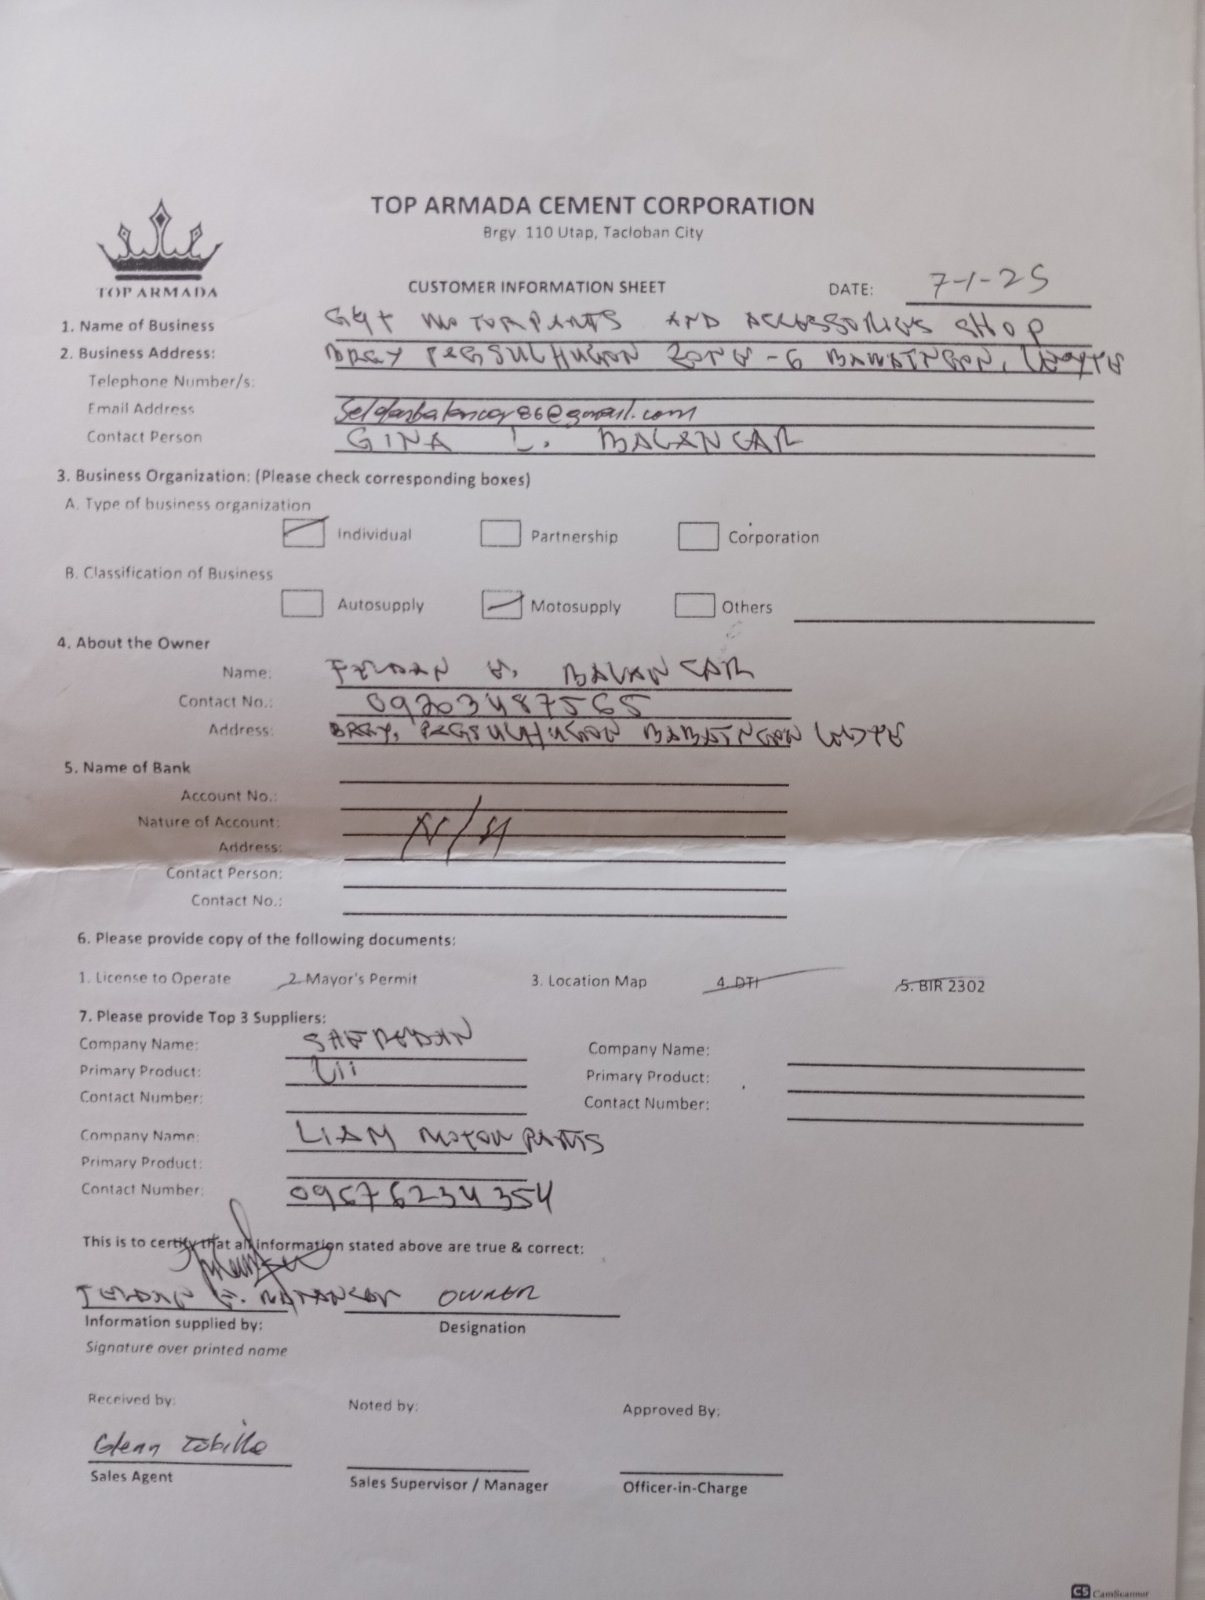 TOP ARMADA CEMENT CORPORATION
Brgy 110 Utap, Tacloban City
TOP ARMADA
CUSTOMER INFORMATION SHEET DATE: 7-1-25
1. Name of Business MOTORPARTS AND ACCESSORIES SHOP
2. Business Address: BRGY ZONE - 6 LEYTE
Telephone Number/s:
Email Address
Contact Person GINA L. BALANCAR
3. Business Organization: (Please check corresponding boxes)
A. Type of business organization
Individual Partnership Corporation
B. Classification of Business
Autosupply Motosupply Others
4. About the Owner
Name: E. BALANCAR
Contact No.: 09203487565
Address: BRGY, LEYTE
5. Name of Bank
Account No.:
Nature of Account: N/A
Address:
Contact Person:
Contact No.:
6. Please provide copy of the following documents:
1. License to Operate 2. Mayor's Permit 3. Location Map 4. DTI 5. BIR 2302
7. Please provide Top 3 Suppliers:
Company Name: Company Name:
Primary Product: Primary Product:
Contact Number: Contact Number:
Company Name: LIAM MOTOR PARTS
Primary Product:
Contact Number: 09676234354
This is to certify that all information stated above are true & correct:
OWNER
Information supplied by: Designation
Signature over printed name
Received by: Noted by: Approved By:
Glenn
Sales Agent Sales Supervisor / Manager Officer-in-Charge
CS CamScanner